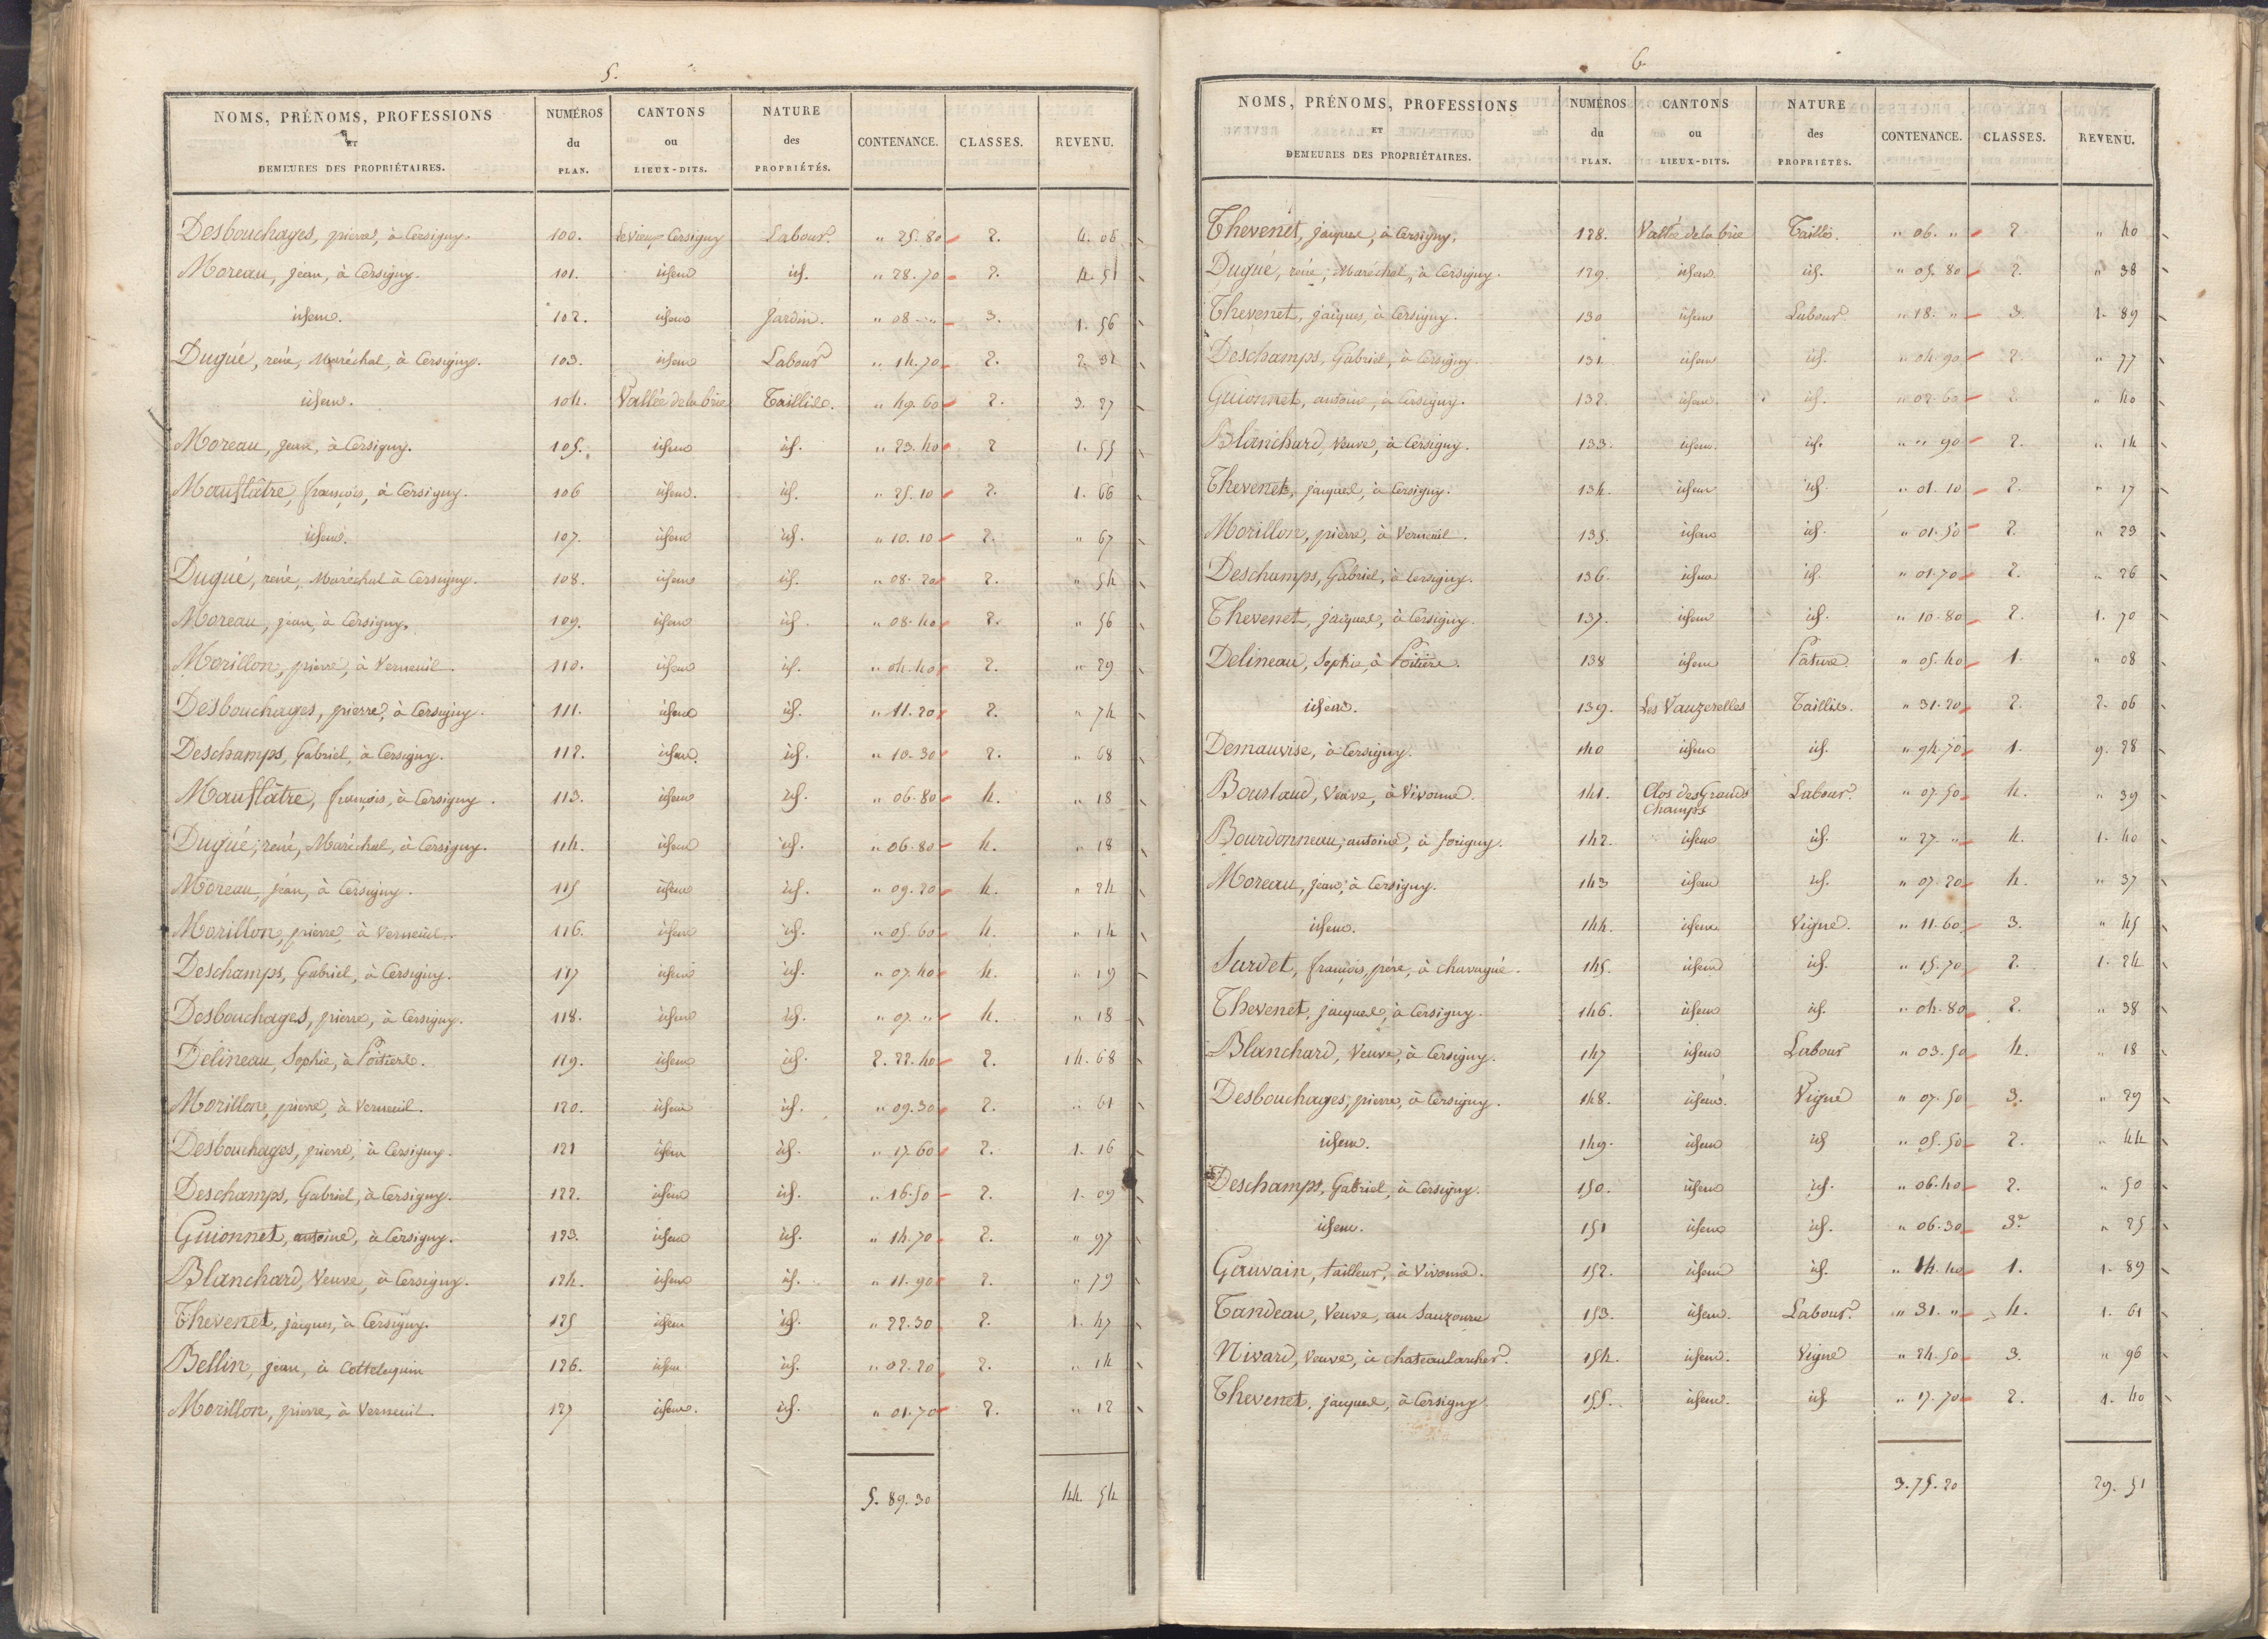 5.
NOMS, PRÉNOMS, PROFESSIONS ET DEMEURES DES PROPRIÉTAIRES. NUMÉROS du PLAN. CANTONS ou LIEUX-DITS. NATURE des PROPRIÉTÉS. CONTENANCE. CLASSES. REVENU.
Desbouchages, pierre, à Cersigny. 100. Le vieux Cersigny Labour. " 25. 80 2. 4. 06
Moreau, jean, à Cersigny. 101. idem id. " 28. 70 2. 4. 51
idem. 102. idem Jardin. " 08. " 3. 1. 56
Dugué, réné, Maréchal, à Cersigny. 103. idem Labour " 14. 70 2. 2. 31
idem. 104. Vallée de la brie Taillis. " 49. 60 2. 3. 27
Moreau, jean, à Cersigny. 105. idem id. " 23. 40 2 1. 55
Mauflâtre, françois, à Cersigny. 106 idem. id. " 25. 10 2. 1. 66
idem. 107. idem id. " 10. 10 2. " 67
Dugué, réné, Maréchal à Cersigny. 108. idem id. " 08. 20 2. " 54
Moreau, jean, à Cersigny. 109. idem id. " 08. 40 2. " 56
Morillon, pierre, à Verneuil. 110. idem id. " 04. 40 2. " 29
Desbouchages, pierre, à Cersigny. 111. idem id. " 11. 20 2. " 74
Deschamps, Gabriel, à Cersigny. 112. idem. id. " 10. 30 2. " 68
Mauflâtre, françois, à Cersigny. 113. idem id. " 06. 80 4. " 18
Dugué, réné, Maréchal, à Cersigny. 114. idem id. " 06. 80 4. " 18
Moreau, jean, à Cersigny. 115 idem id. " 09. 20 4. " 24
Morillon, pierre, à Verneuil. 116. idem id. " 05. 60 4. " 14
Deschamps, Gabriel, à Cersigny. 117 idem id. " 07. 40 4. " 19
Desbouchages, pierre, à Cersigny. 118. idem id. " 07. " 4. " 18
Delineau, Sophie, à Poitiers. 119. idem id. 2. 22. 40 2. 14. 68
Morillon, pierre, à Verneuil. 120. idem id. " 09. 30 2. " 61
Desbouchages, pierre, à Cersigny. 121 idem id. " 17. 60 2. 1. 16
Deschamps, Gabriel, à Cersigny. 122. idem id. " 16. 50 2. 1. 09
Guionnet, antoine, à Cersigny. 123. idem id. " 14. 70 2. " 97
Blanchard, Veuve, à Cersigny. 124. idem id. " 11. 90 2. " 79
Thevenet, jacques, à Cersigny. 125 idem id. " 22. 30 2. 1. 47
Bellin, jean, à 126. idem id. " 02. 20 2. " 14
Morillon, pierre, à Verneuil. 127 idem. id. " 01. 70 2. " 12
5. 89. 30 44. 54
6
NOMS, PRÉNOMS, PROFESSIONS ET DEMEURES DES PROPRIÉTAIRES. NUMÉROS du PLAN. CANTONS ou LIEUX-DITS. NATURE des PROPRIÉTÉS. CONTENANCE. CLASSES. REVENU.
Thevenet, jacques, à Cersigny. 128. Vallée de la brie Taillis. " 06. " 2 " 40
Dugué, réné, Maréchal, à Cersigny. 129. idem id. " 05. 80 2. " 38
Thevenet, jacques, à Cersigny. 130 idem Labour " 18. " 3. 1. 89
Deschamps, Gabriel, à Cersigny. 131 idem id. " 04. 90 2. " 77
Guionnet, antoine, à Cersigny. 132. idem. id. " 02. 60 2. " 40
Blanchard, Veuve, à Cersigny. 133. idem. id. " " 90 2. " 14
Thevenet, jacques, à Cersigny. 134. idem id. " 01. 10 2. " 17
Morillon, pierre, à Verneuil. 135. idem id. " 01. 50 2. " 23
Deschamps, Gabriel, à Cersigny. 136. idem id. " 01. 70 2. " 26
Thevenet, jacques, à Cersigny. 137. idem id. " 10. 80 2. 1. 70
Delineau, Sophie, à Poitiers. 138 idem Pature " 05. 40 1. " 08
idem. 139. Les Vauzerelles Taillis. " 31. 20 2. 2. 06
Demauvise, à Cersigny. 140 idem id. " 94. 70 1. 9. 28
Bourlaud, Veuve, à Vivonne. 141. Clos des Grands Champs Labour. " 07. 50 4. " 39
Bourdonneau, antoine, à 142. idem id. " 27. " 4. 1. 40
Moreau, jean, à Cersigny. 143 idem id. " 07. 20 4. " 37
idem. 144. idem Vigne. " 11. 60 3. " 45
Sardet, françois, père, à chavagné. 145. idem id. " 15. 70 2. 1. 24
Thevenet, jacques, à Cersigny. 146. idem id. " 04. 80 2. " 38
Blanchard, Veuve, à Cersigny. 147 idem Labour " 03. 50 4. " 18
Desbouchages, pierre, à Cersigny. 148. idem. Vigne " 07. 50 3. " 29
idem. 149. idem id " 05. 50 2. " 44
Deschamps, Gabriel, à Cersigny. 150. idem id. " 06. 40 2. " 50
idem. 151 idem id. " 06. 30 3. " 25
Gauvain, tailleur, à Vivonne. 152. idem id. " 14. 40 1. 1. 89
Tandeau, Veuve, au 153. idem. Labour. " 31. " 4. 1. 61
Nivard, Veuve, à chateaularcher. 154. idem. Vigne " 24. 50 3. " 96
Thevenet, jacques, à Cersigny 155. idem. id " 17. 70 2. 1. 40
3. 75. 20 29. 51